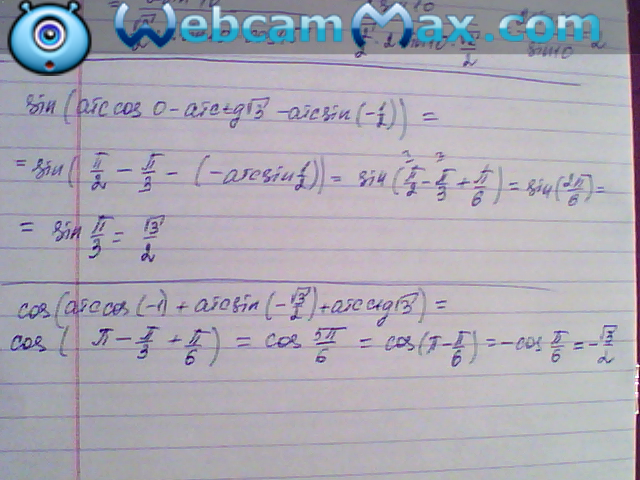 WebcamMax.com
sin(arccos 0 - arcctg√3 - arcsin(-1/2)) =
= sin(π/2 - π/3 - (-arcsin 1/2)) = sin(π/2 - π/3 + π/6) = sin(2π/6) =
= sin π/3 = √3/2
cos(arccos(-1) + arcsin(-√3/2) + arcctg√3) =
cos( π - π/3 + π/6) = cos 5π/6 = cos(π - π/6) = -cos π/6 = -√3/2